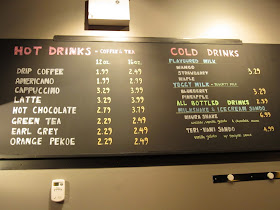 HOT DRINKS - COFFEE & TEA
12 oz. 16 oz.
DRIP COFFEE 1.99 2.29
AMERICANO 1.99 2.49
CAPPUCCINO 3.29 3.99
LATTE 3.29 3.99
HOT CHOCOLATE 2.79 3.79
GREEN TEA 2.29 2.49
EARL GREY 2.29 2.49
ORANGE PEKOE 2.29 2.49
COLD DRINKS
FLAVOURED MILK
MANGO
STRAWBERRY 3.29
MAPLE
YOGGY MILK
BLUEBERRY 3.29
PINEAPPLE
ALL BOTTLED DRINKS
MILKSHAKE & ICECREAM SANDO
SHAKE 6.99
TERI-MAYI SANDO 4.99